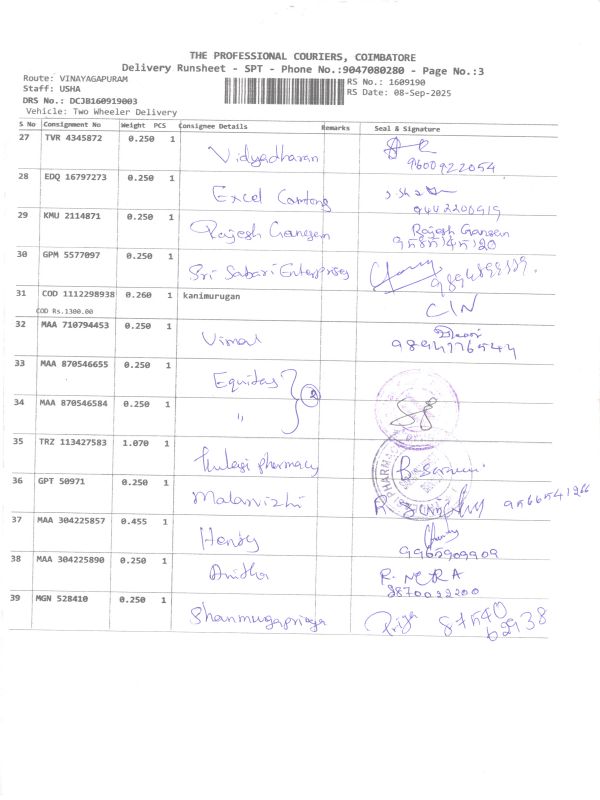 THE PROFESSIONAL COURIERS, COIMBATORE
Delivery Runsheet - SPT - Phone No.:9047080280 - Page No.:3
Route: VINAYAGAPURAM
RS No.: 1609190
Staff: USHA
RS Date: 08-Sep-2025
DRS No.: DCJB160919003
Vehicle: Two Wheeler Delivery
S No Consignment No Weight PCS Consignee Details Remarks Seal & Signature
27 TVR 4345872 0.250 1 Vidyadharan 9600922054
28 EDQ 16797273 0.250 1 Excel
29 KMU 2114871 0.250 1 Rajesh Gansen Rajesh Gansen
30 GPM 5577097 0.250 1 Sri Sabari Enterprises
31 COD 1112298938 0.260 1 kanimurugan C/N
COD Rs.1300.00
32 MAA 710794453 0.250 1 Vimal
33 MAA 870546655 0.250 1 Equitas 2
34 MAA 870546584 0.250 1 "
35 TRZ 113427583 1.070 1 Thulasi pharmacy
36 GPT 50971 0.250 1 Malarvizhi 9566541266
37 MAA 304225857 0.455 1 Henry
9965909909
38 MAA 304225890 0.250 1 Anitha
39 MGN 528410 0.250 1 Shanmugapriya Priya 87540
62938